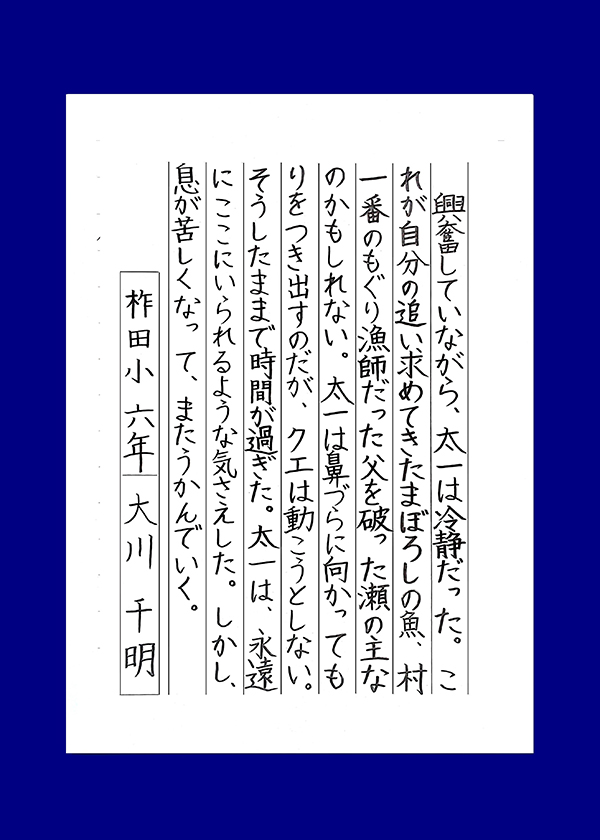 興奮していながら、太一は冷静だった。こ
れが自分の追い求めてきたまぼろしの魚、村
一番のもぐり漁師だった父を破った瀬の主な
のかもしれない。太一は鼻づらに向かっても
りをつき出すのだが、クエは動こうとしない。
そうしたままで時間が過ぎた。太一は、永遠
にここにいられるような気さえした。しかし、
息が苦しくなって、またうかんでいく。
柞田小六年 大川千明